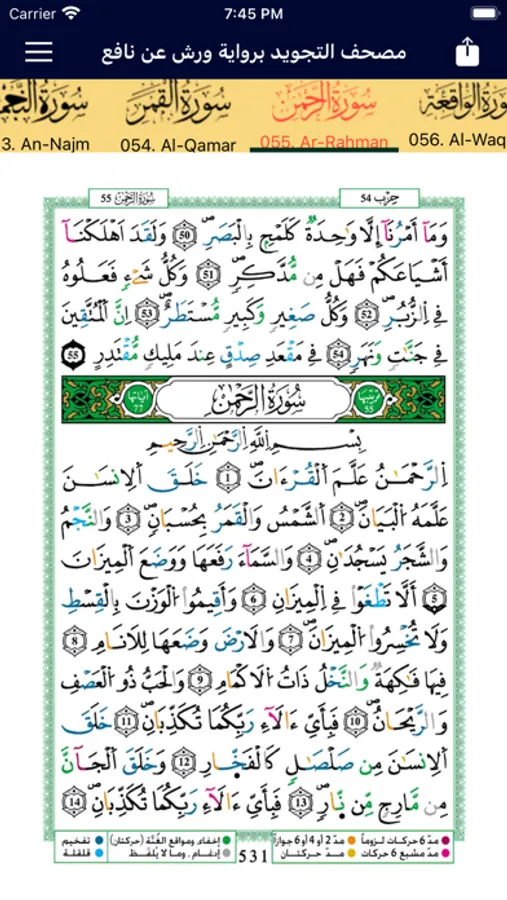 Carrier 7:45 PM
مصحف التجويد برواية ورش عن نافع
سورة النجم سورة القمر سورة الرحمن سورة الواقعة
3. An-Najm 054. Al-Qamar 055. Ar-Rahman 056. Al-Waq
55 سورة الرحمن حزب 54
وَمَآ أَمْرُنَآ إِلَّا وَٰحِدَةٌ كَلَمْحٍ بِالْبَصَرِ 50 وَلَقَدَ اَهْلَكْنَآ
أَشْيَاعَكُمْ فَهَلْ مِن مُّدَّكِرٍ 51 وَكُلُّ شَےْءٍ فَعَلُوهُ
فِے اِلزُّبُرِ 52 وَكُلُّ صَغِيرٍ وَكَبِيرٍ مُّسْتَطَرٌ 53 إِنَّ اَلْمُتَّقِينَ
فِے جَنَّٰتٍ وَنَهَرٍ 54 فِے مَقْعَدِ صِدْقٍ عِندَ مَلِيكٍ مُّقْتَدِرٍ 55
ترتيبها 55 سُورَةُ الرَّحْمَٰن آياتها 77
بِسْمِ اِللَّهِ اِلرَّحْمَٰنِ اِلرَّحِيمِ
اِلرَّحْمَٰنُ عَلَّمَ اَلْقُرْءَانَ 1 خَلَقَ اَلِانسَٰنَ
عَلَّمَهُ اُلْبَيَانَ 2 اَلشَّمْسُ وَالْقَمَرُ بِحُسْبَانٍ 3 وَالنَّجْمُ
وَالشَّجَرُ يَسْجُدَٰنِ 4 وَالسَّمَآءَ رَفَعَهَا وَوَضَعَ اَلْمِيزَانَ
5 أَلَّا تَطْغَوْاْ فِے اِلْمِيزَانِ 6 وَأَقِيمُواْ اُلْوَزْنَ بِالْقِسْطِ
وَلَا تُخْسِرُواْ اُلْمِيزَانَ 7 وَالَارْضَ وَضَعَهَا لِلَانَامِ 8
فِيهَا فَٰكِهَةٌ وَالنَّخْلُ ذَاتُ اُلَاكْمَامِ 9 وَالْحَبُّ ذُو اُلْعَصْفِ
وَالرَّيْحَانُ 10 فَبِأَيِّ ءَالَآءِ رَبِّكُمَا تُكَذِّبَٰنِ 11 خَلَقَ
اَلِانسَٰنَ مِن صَلْصَٰلٍ كَالْفَخَّارِ 12 وَخَلَقَ اَلْجَآنَّ
مِن مَّارِجٍ مِّن نَّارٍ 13 فَبِأَيِّ ءَالَآءِ رَبِّكُمَا تُكَذِّبَٰنِ 14
مدّ 6 حركات لزوماً مدّ 2 أو 4 أو 6 جوازاً إخفاء ومواقع الغُنَّة (حركتان) تفخيم
مدّ مشبع 6 حركات مدّ حركتان 531 إدغام . وما لا يُلفَظ قلقلة